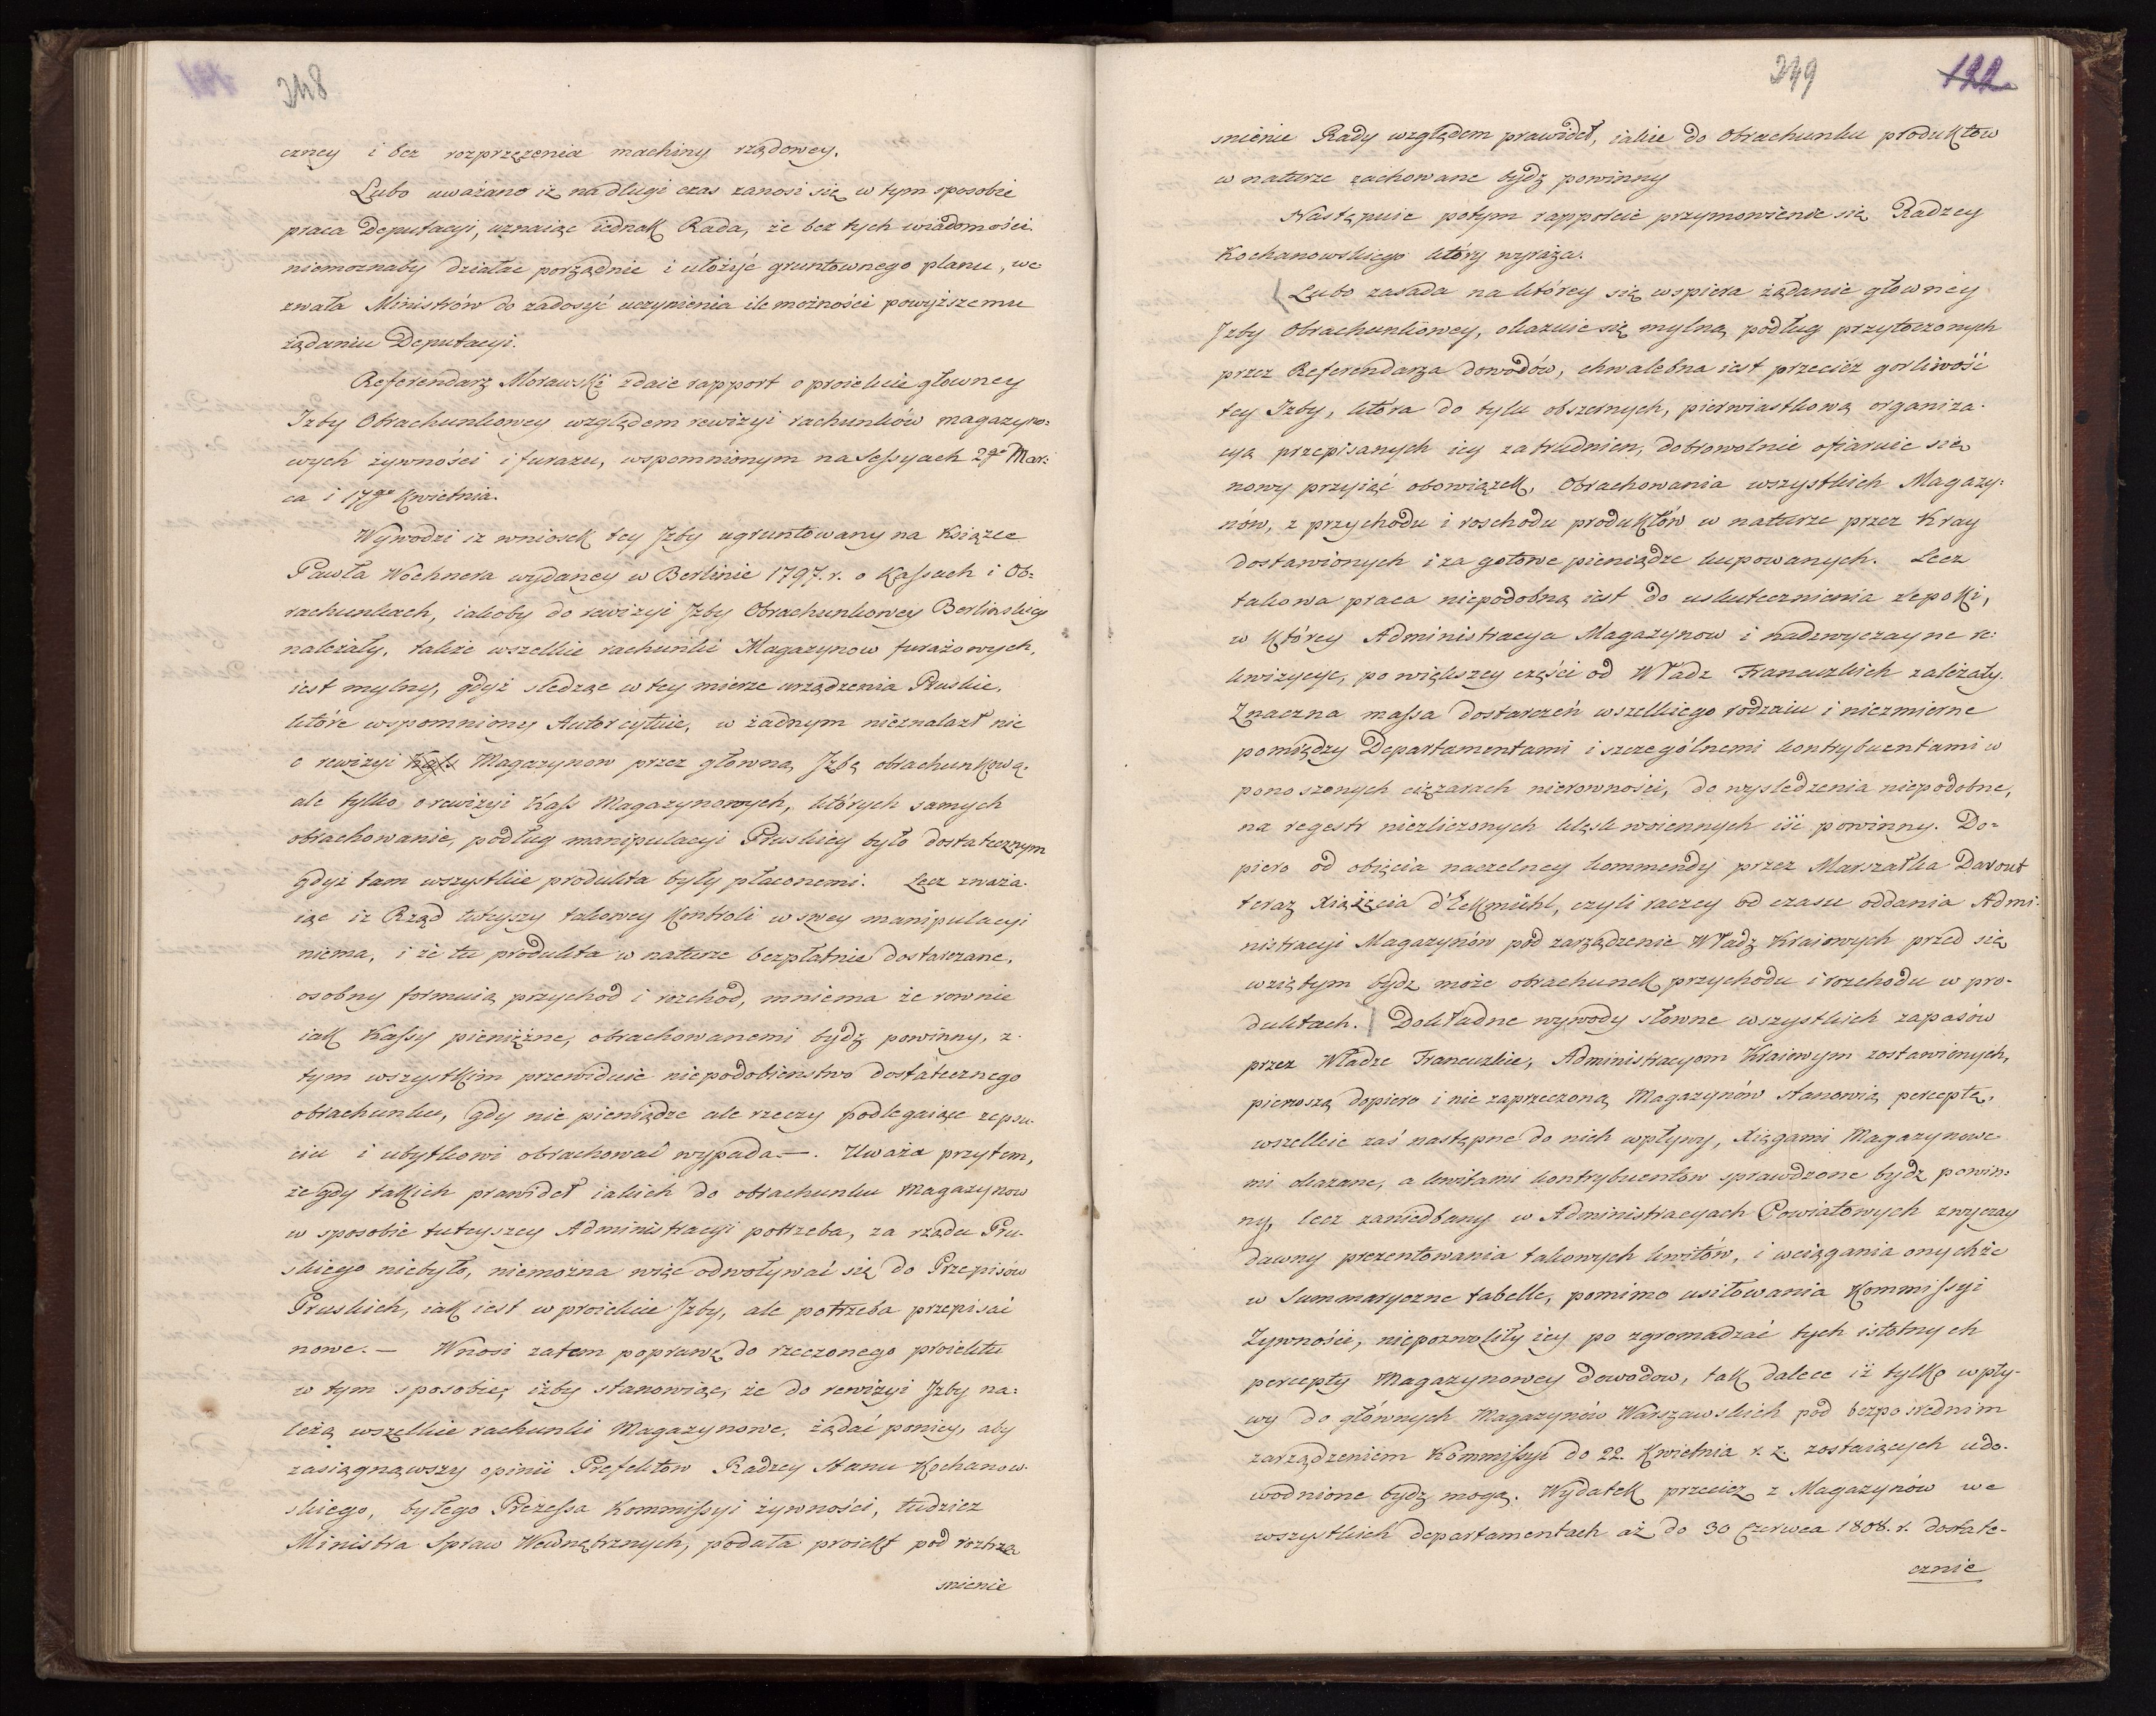 248
czney i bez rozprzężenia machiny rządowey.
Lubo uważano iż na długi czas zanosi się w tym sposobie
praca Deputacyi, uznaiąc iednak Rada, że bez tych wiadomości
niemożnaby działać porządnie i ułożyć gruntownego planu, we
zwała Ministrów do zadosyć uczynienia ile możności powyższemu
żądaniu Deputacyi.
Referendarz Morawski zdaie rapport o proiekcie głowney
Izby Obrachunkowey względem rewizyi rachunków magazyno=
wych żywności i furażu, wspomnionym na Sessyach 29go Mar:
ca i 17go Kwietnia.
Wywodzi iż wniosek tey Izby ugruntowany na Książce
Pawła Wochnera wydaney w Berlinie 1797. r. o Kassach i Ob=
rachunkach, iakoby do rewizyi Izby Obrachunkowey Berlińskiey
należały, także wszelkie rachunki Magazynow furażowych,
iest mylny, gdyż sledząc w tey mierze urządzenia Pruskie,
które wspomniony Autor cytuie, w żadnym nieznalazł nic
o rewizyi Kass Magazynow przez główną Izbę obrachunkową.
ale tylko o rewizyi Kass Magazynowych, których samych
obrachowanie, podług manipulacyi Pruskiey było dostatecznym
gdyż tam wszystkie produkta były płaconemi. Lecz zważa.
iąc iż Rząd tuteyszy takowey Kontroli w swey manipulacyi
niema, i że tu produkta w naturze bezpłatnie dostarczane,
osobny formuią przychod i rozchod, mniema że rownie
iak Kassy pieniężne, obrachowanemi bydź powinny, z.
tym wszystkim przewiduie niepodobieństwo dostatecznego
obrachunku, gdy nie pieniądze ale rzeczy podlegaiące zepsu.
ciu i ubytkowi obrachować wypada.—. Uważa przytem,
że gdy takich prawideł iakich do obrachunku Magazynow
w sposobie tuteyszey Administracyi potrzeba, za rządu Pru.
skiego niebyło, niemożna więc odwoływać się do Przepisów
Pruskich, iak iest w proiekcie Izby, ale potrzeba przepisać
nowe. — Wnosi zatem poprawę do rzeczonego proiektu
w tym sposobie; iżby stanowiąc, że do rewizyi Izby na:
leżą wszelkie rachunki Magazynowe, żądać poniey, aby
zasiągnąwszy opinii Prefektow Radzcy Stanu Kochanow.
skiego, byłego Prezessa Kommissyi żywności, tudzież
Ministra Spraw Wewnętrznych, podała proiekt pod roztrzą
snienie
249
122
snienie Rady względem prawideł, iakie do Obrachunku produktow
w naturze zachowane bydź powinny
Następuie potym rapporcie przymowienie się Radzcy
Kochanowskiego który wyraża.
Lubo zasada na którey się wspiera żądanie głowney
Izby Obrachunkowey, okazuie się mylną podług przytoczonych
przez Referendarza dowodów, chwalebna iest przecież gorliwość
tey Izby, która do tylu obszernych, pierwiastkową organiza.
cyą przepisanych iey zatrudnien, dobrowolnie ofiaruie się
nowy przyiąć obowiązek, Obrachowania wszystkich Magazy:
nów, z przychodu i roschodu produktów w naturze przez Kray
dostawionych i za gotowe pieniądze kupowanych. Lecz
takowa praca niepodobną iest do uskutecznienia z epoki,
w którey Administracya Magazynow i nadzwyczayne re:
kwizycye, po większey części od Władz Francuzkich zależały.
Znaczna massa dostarczeń wszelkiego rodzaiu i niezmierne
pomiędzy Departamentami i szczególnemi kontrybuentami w
ponoszonych ciężarach nierowności, do wysledzenia niepodobne,
na regestr niezliczonych klęsk woiennych iść powinny. Do=
piero od obięcia naczelney kommendy przez Marszałka Davout
teraz Xiążęcia d'Eckmühl, czyli raczey od czasu oddania Admi:
nistracyi Magazynów pod zarządzenie Władz Kraiowych przed się
wziętym bydź może obrachunek przychodu i rozchodu w pro.
duktach. Dokładne wywody słowne wszystkich zapasów
przez Władze Francuzkie, Administracyom Kraiowym zostawionych,
pierwszą dopiero i nie zaprzeczoną Magazynów stanowią perceptę,
wszelkie zaś następne do nich wpływy, Xięgami Magazynowe
mi okazane, a kwitami kontrybuentow sprawdzone bydź powin:
ny, lecz zaniedbany w Administracyach Powiatowych zwyczay
dawny prezentowania takowych kwitów, i wciągania onychże
w Summaryczne tabelle, pomimo usiłowania Kommissyi
Żywności, niepozwoliły iey po zgromadzać tych istotnych
percepty Magazynowey dowodow, tak dalece iż tylko wpły-
wy do głównych Magazynów Warszawskich pod bezpośrednim
zarządzeniem Kommissyi do 22. Kwietnia r. z. zostaiących udo.
wodnione bydź mogą. Wydatek przecież z Magazynów we
wszystkich departamentach aż do 30 Czerwca 1808. r. dostate-
cznie